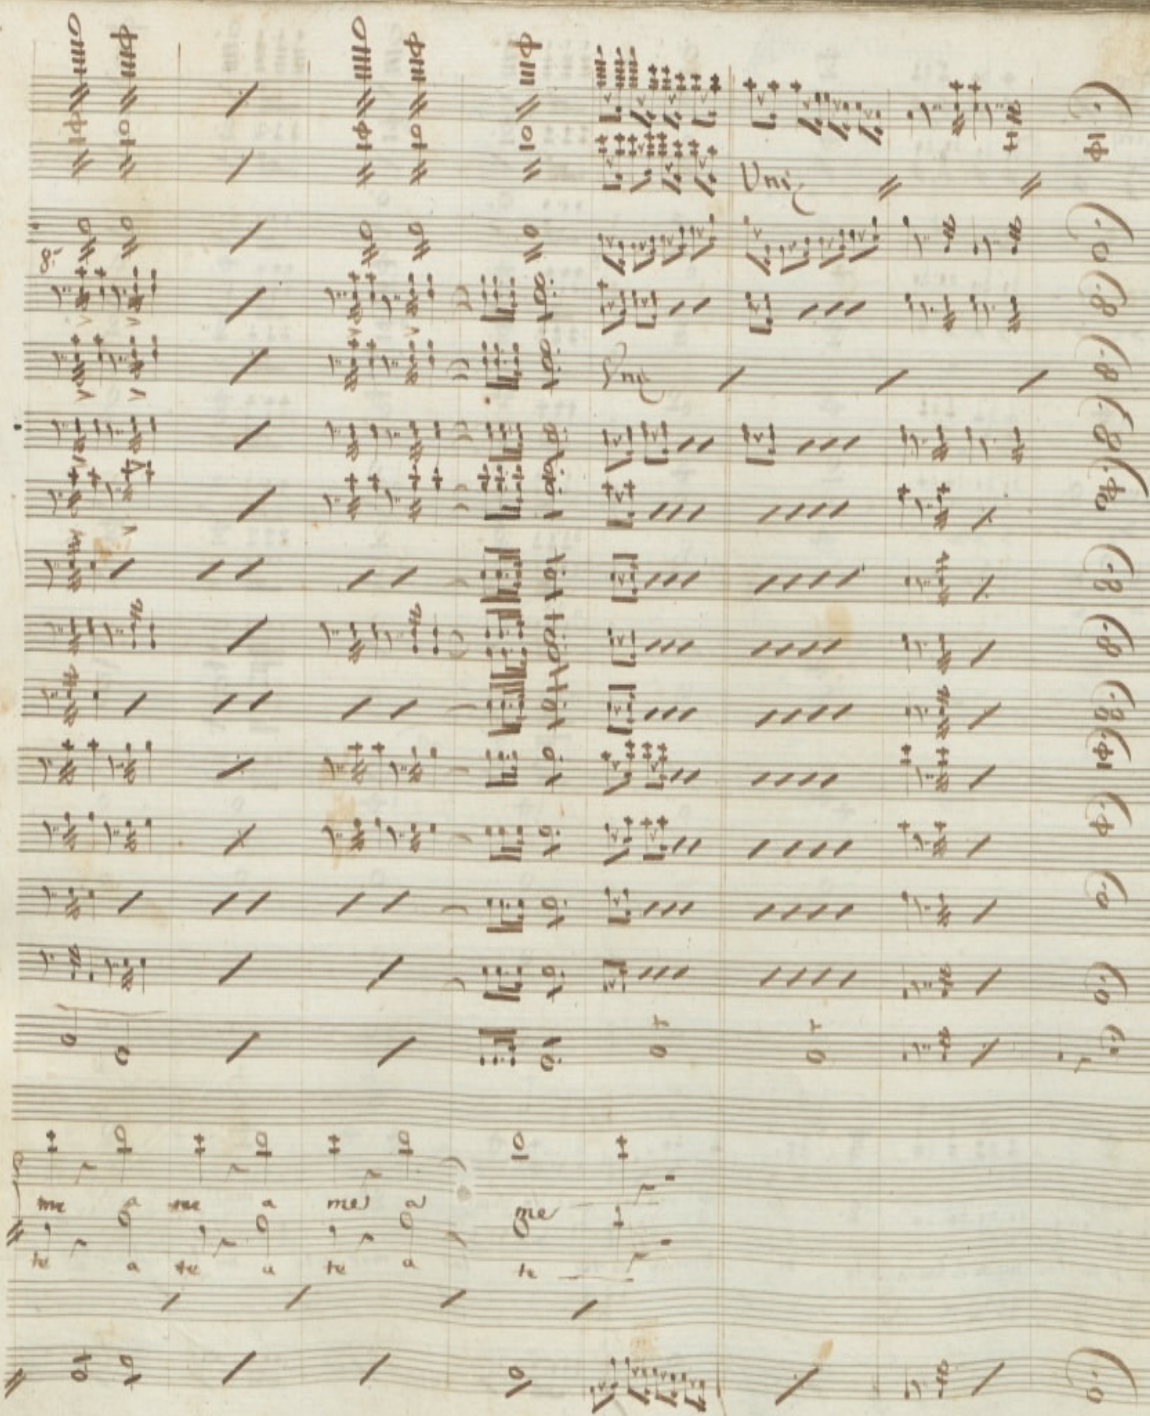 Uni
8
Uni
me a me a me a me
te a te a te a te